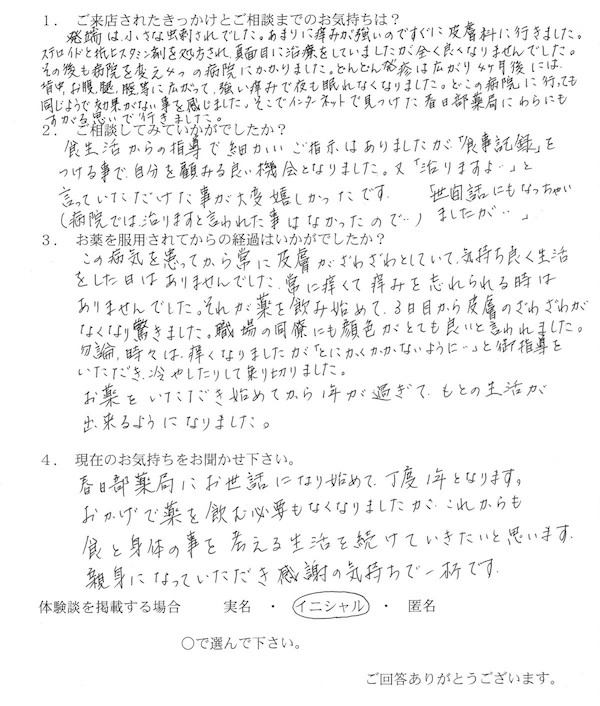 １． ご来店されたきっかけとご相談までのお気持ちは？
発端は、小さな虫刺されでした。あまりに痒みが強いのですぐに皮膚科に行きました。
ステロイドと抗ヒスタミン剤を処方され、真面目に治療をしていましたが全く良くなりませんでした。
その後も病院を変え4つの病院にかかりました。どんどん発疹は広がり4ヶ月後には、
背中、お腹、腿、脛等に広がって、強い痒みで夜も眠れなくなりました。どこの病院に行っても
同じようで効果がない事を感じました。そこでインターネットで見つけた春日部薬局にわらにも
すがる思いで行きました。
２． ご相談してみていかがでしたか？
食生活からの指導で細かいご指示はありましたが、「食事記録」を
つける事で、自分を顧みる良い機会となりました。又「治りますよ…」と
言っていただけた事が大変嬉しかったです。 世間話にもなっちゃい
（病院では、治りますと言われた事はなかったので…） ましたが…」
３． お薬を服用されてからの経過はいかがでしたか？
この病気を患ってから常に皮膚がざわざわとしていて、気持ち良く生活
をした日はありませんでした。常に痒くて痒みを忘れられる時は
ありませんでした。それが薬を飲み始めて、3日目から皮膚のざわざわが
なくなり驚きました。職場の同僚にも顔色がとても良いと言われました。
勿論、時々は、痒くなりましたが「とにかくかかないように…」と御指導を
いただき、冷やしたりして乗り切りました。
お薬をいただき始めてから1年が過ぎて、もとの生活が
出来るようになりました。
４． 現在のお気持ちをお聞かせ下さい。
春日部薬局にお世話になり始めて、丁度1年となります。
おかげで薬を飲む必要もなくなりましたが、これからも
食と身体の事を考える生活を続けていきたいと思います。
親身になっていただき感謝の気持ちで一杯です。
体験談を掲載する場合 実名 ・ イニシャル ・ 匿名
○で選んで下さい。
ご回答ありがとうございます。